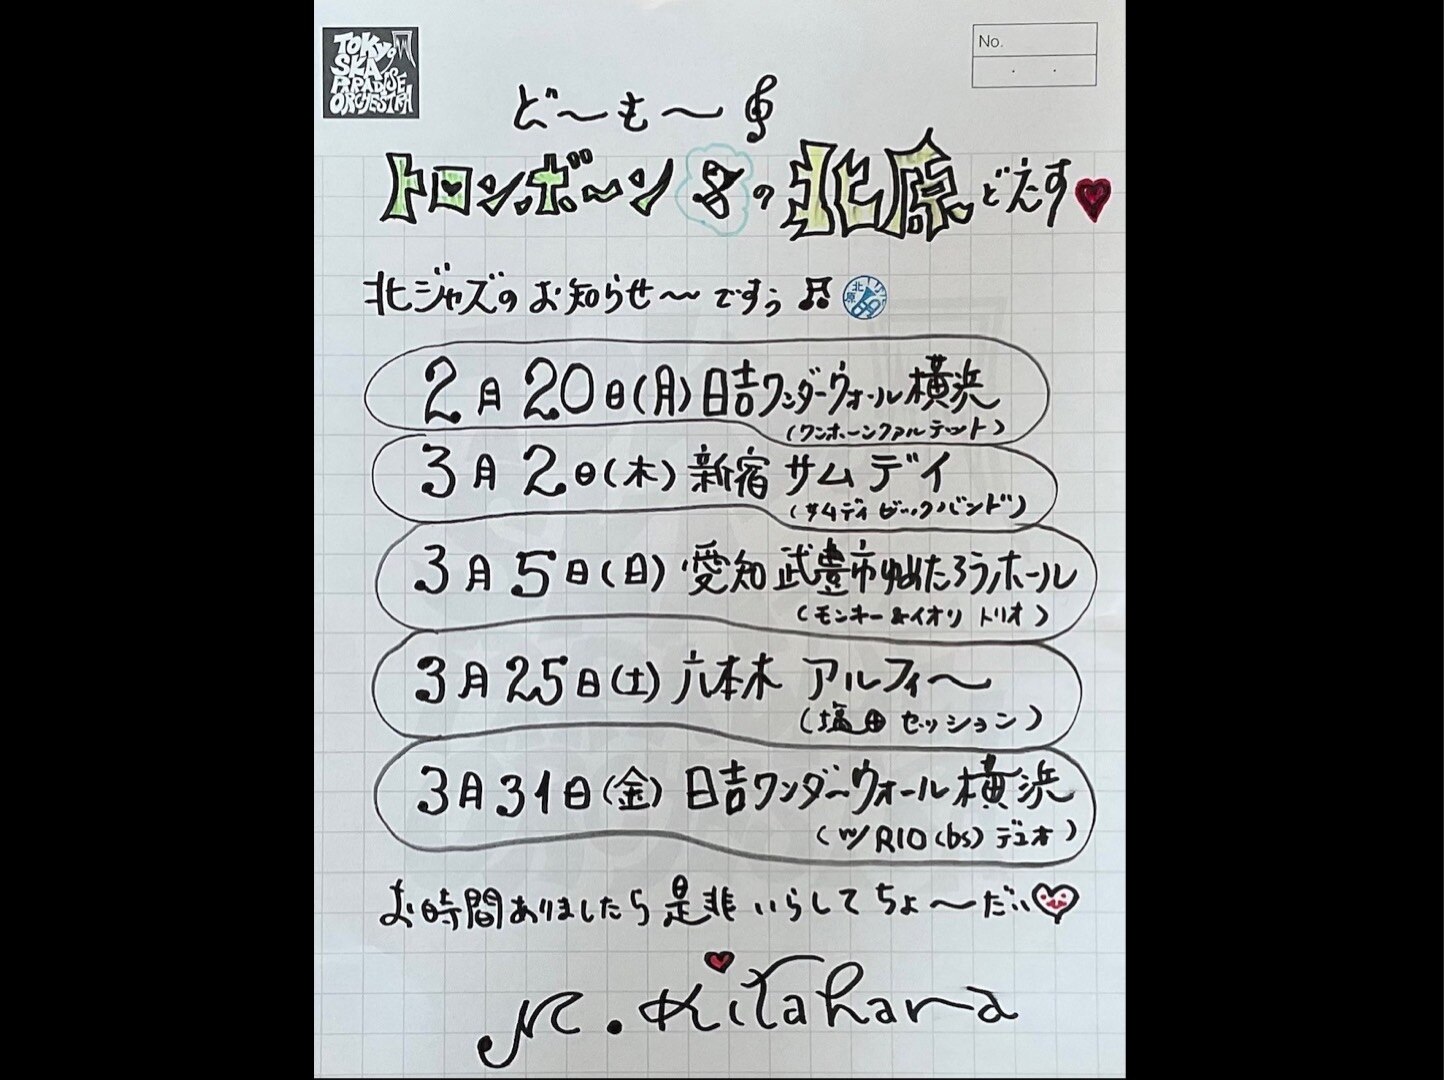 TOKYO
SKA
PARADISE
ORCHESTRA
No.
ど〜も〜
トロンボーンの北原どえす
北ジャズのお知らせ〜ですぅ
北原
2月20日(月)日吉ワンダーウォール横浜
(ワンホーンクァルテット)
3月2日(木)新宿サムデイ
(サムディビックバンド)
3月5日(日)愛知武豊市ゆめたろうホール
(モンキー&イオリ トリオ)
3月25日(土)六本木 アルフィ〜
(塩田セッション)
3月31日(金)日吉ワンダーウォール横浜
(W/RIO(bs)デュオ)
お時間ありましたら是非いらしてちょ〜だい
M.Kitahara